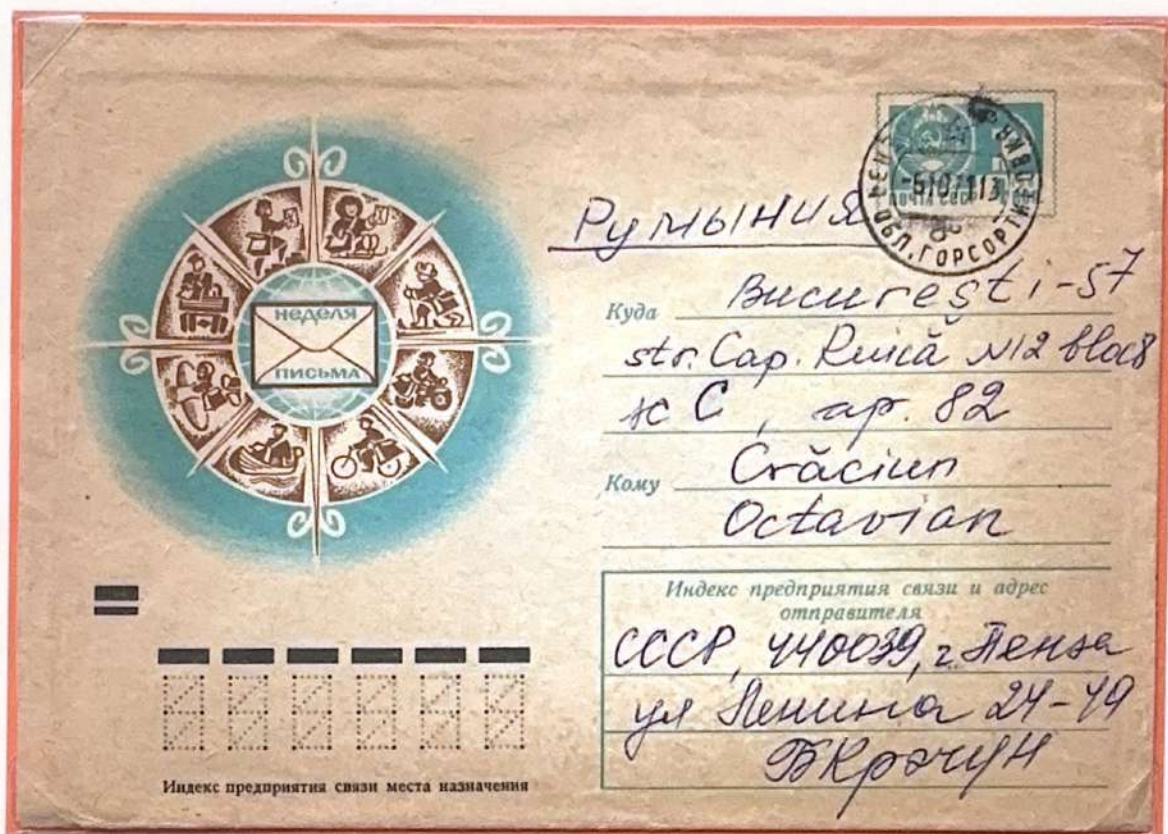 неделя
письма
ПОЧТА СССР
ОБЛ. ГОРСОРТ
Румыния
Куда București-57
str. Cap. Ruică N12 bloc8
sc C, ap. 82
Кому Crăciun
Octavian
Индекс предприятия связи и адрес
отправителя
СССР, 440039, г. Пенза
ул Ленина 24-49
БКрачун
Индекс предприятия связи места назначения